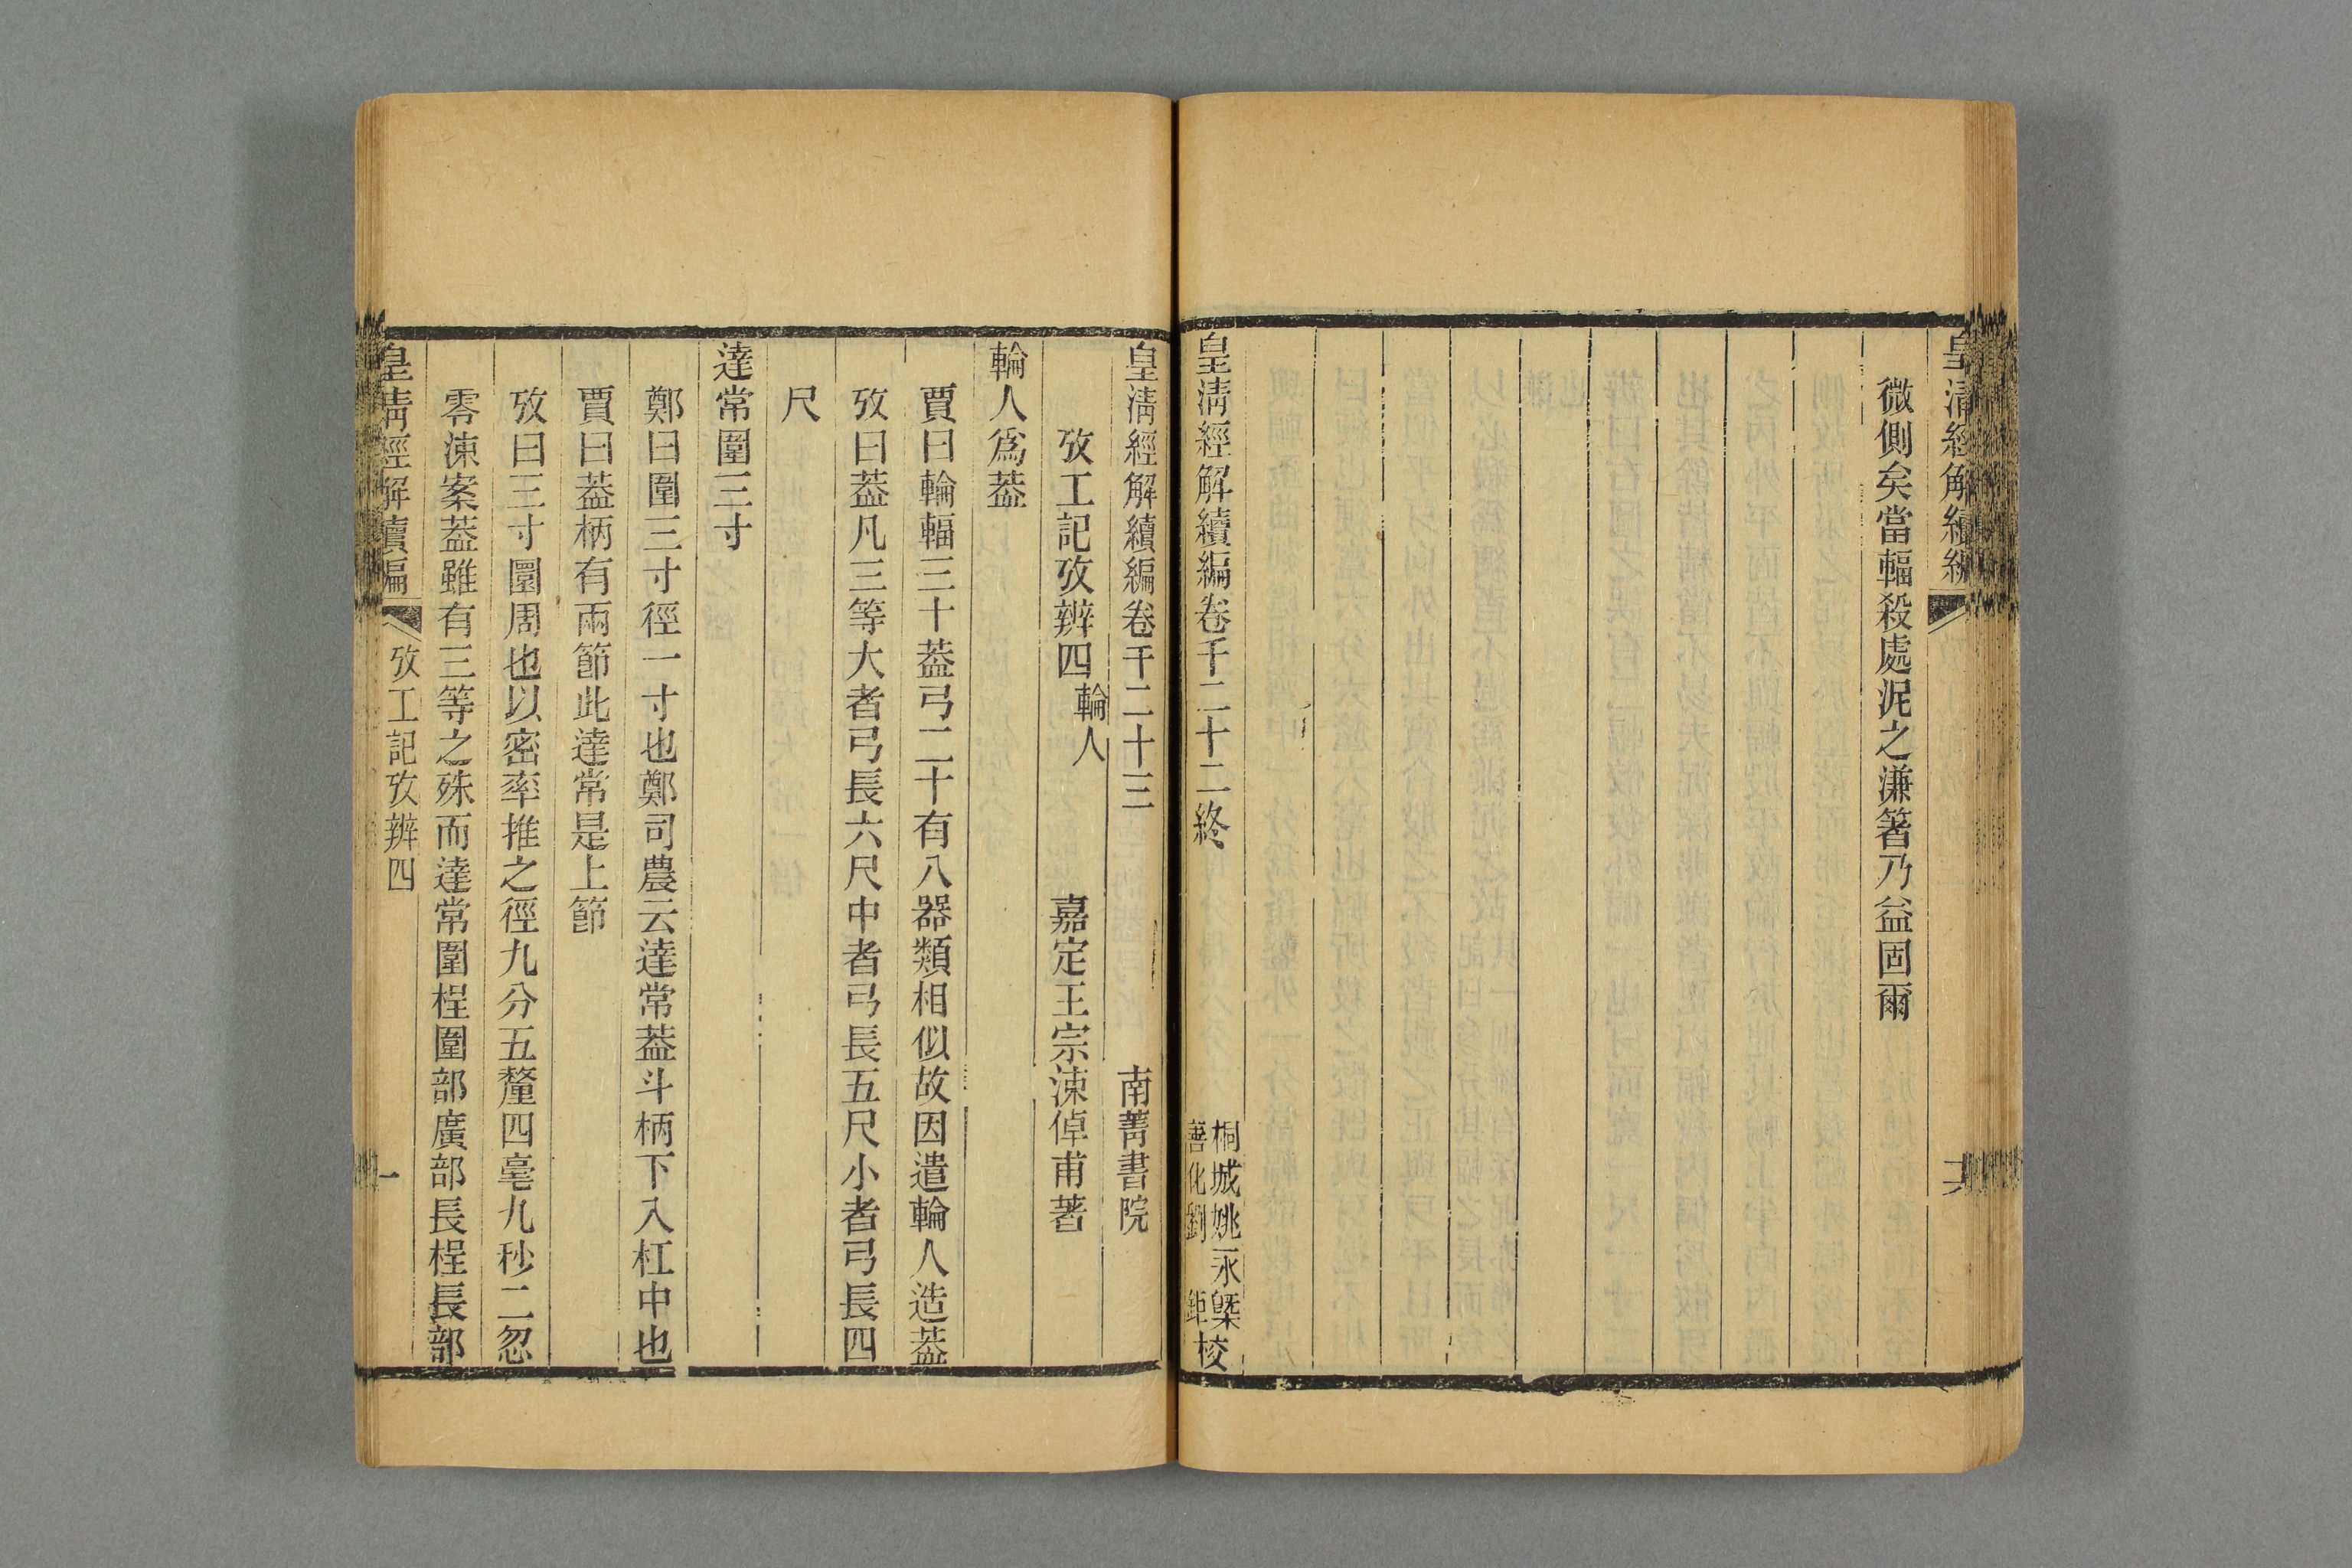 皇清經解續編
微側矣當輻殺處泥之溓箸乃益固爾
皇清經解續編卷千二十二終
桐城姚永㮣
善化劉鉅校
皇清經解續編卷千二十三
南菁書院
攷工記攷辨四輪人
嘉定王宗涑倬甫著
輪人爲葢
賈曰輪輻三十葢弓二十有八器類相似故因遣輪人造葢
攷曰葢凡三等大者弓長六尺中者弓長五尺小者弓長四
尺
達常圍三寸
鄭曰圍三寸徑一寸也鄭司農云達常葢斗柄下入杠中也
賈曰葢柄有兩節此達常是上節
攷曰三寸圍周也以密率推之徑九分五釐四毫九秒二忽
零涑案葢雖有三等之殊而達常圍桯圍部廣部長桯長部
皇清經解續編
攷工記攷辨四
一